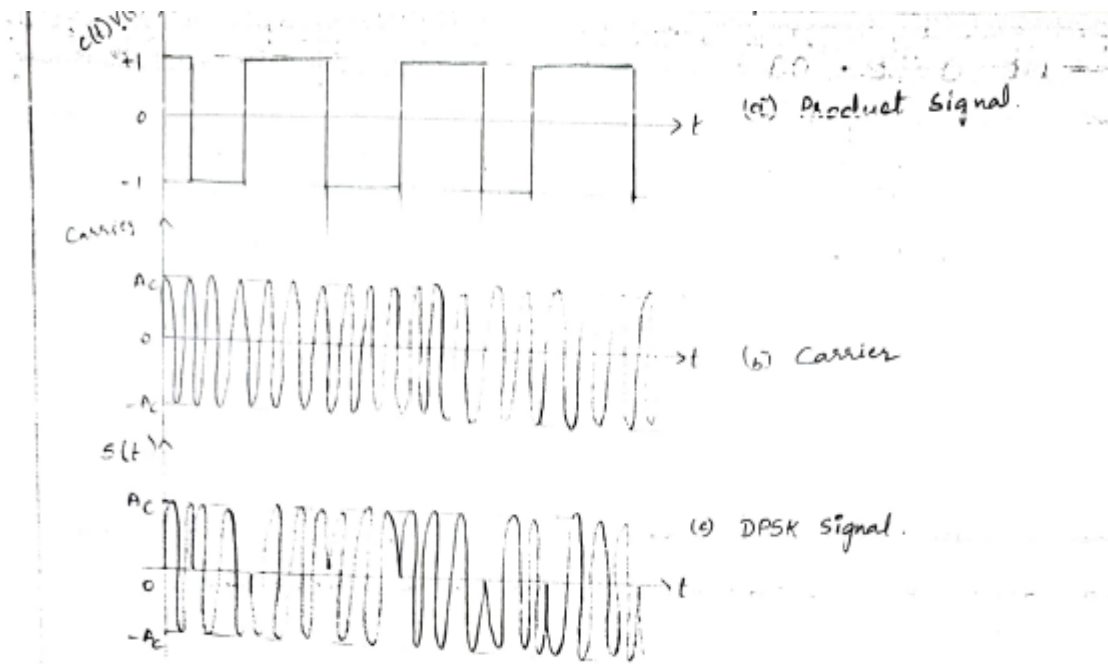 +1
0
-1
t
(a) Product Signal.
Carrier
Ac
0
-Ac
t
(b) Carrier
S(t)
Ac
0
-Ac
t
(c) DPSK Signal.